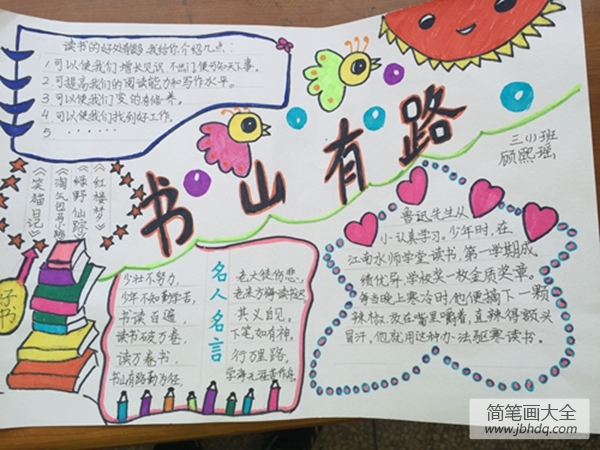 读书的好处有很多,我给你介绍几点:
1.可以使我们增长见识,不出门便可知天下事。
2.可提高我们的阅读能力和写作水平。
3.可以使我们变的有修养。
4.可以使我们找到好工作。
5.······
书山有路
三(1)班
顾熙瑶
《红楼梦》
《绿野仙踪》
《淘气包马小跳》
《笑猫日记》
好书
名人名言
少壮不努力,
老大徒伤悲。
少年不知勤学苦,
老来方悔读书迟。
书读百遍,
其义自见。
读书破万卷,
下笔如有神。
读万卷书,
行万里路。
书山有路勤为径,
学海无涯苦作舟。
鲁迅先生从
小认真学习。少年时,在
江南水师学堂读书,第一学期成
绩优异,学校奖一枚金质奖章。
每当晚上寒冷时,他便摘下一颗
辣椒,放在嘴里嚼着,直辣得额头
冒汗。他就用这种办法驱寒读书。
简笔画大全
www.jbhdq.com